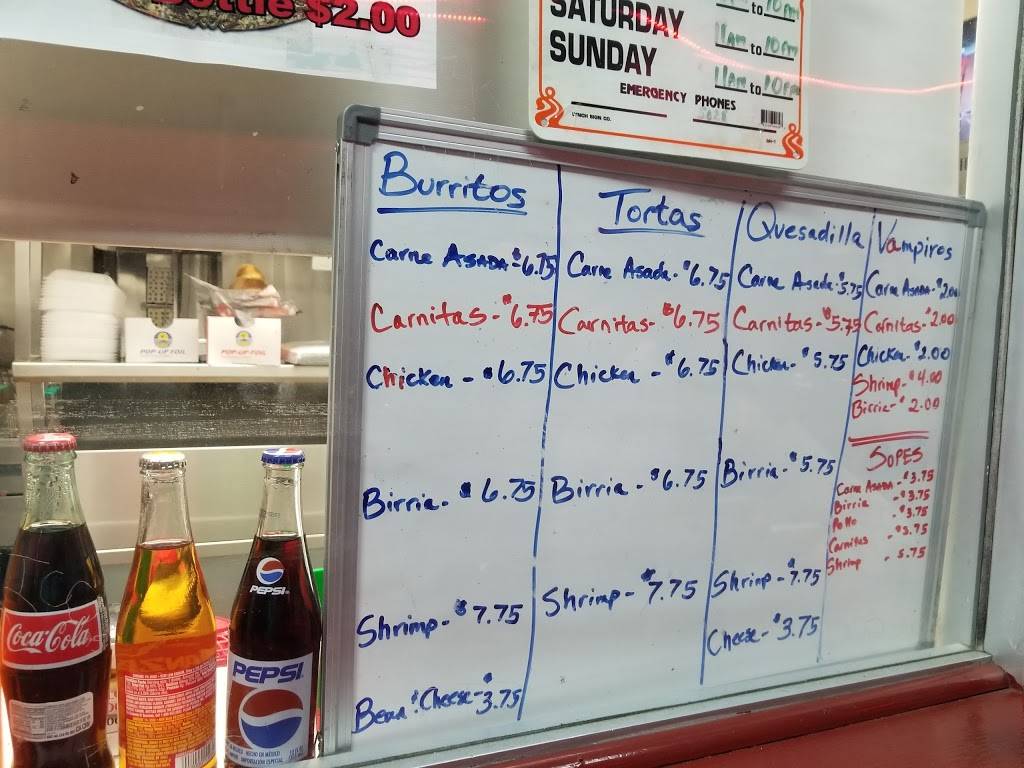 Bottle $2.00
SATURDAY 11am to 10pm
SUNDAY 11am to 10pm
EMERGENCY PHONES
LYNCH SIGN CO.
Burritos
Carne ASADA - $6.75
Carnitas - $6.75
Chicken - $6.75
Birria - $6.75
Shrimp - $7.75
Bean & Cheese - $3.75
Tortas
Carne Asada - $6.75
Carnitas - $6.75
Chicken - $6.75
Birria - $6.75
Shrimp - $7.75
Quesadilla
Carne Asada - $5.75
Carnitas - $5.75
Chicken - $5.75
Birria - $5.75
Shrimp - $7.75
Cheese - $3.75
Vampiros
Carne ASADA - $2.00
Carnitas - $2.00
Chicken - $2.00
Shrimp - $4.00
Birria - $2.00
SOPES
Carne ASADA - $3.75
Birria - $3.75
Pollo - $3.75
Carnitas - $3.75
Shrimp - 5.75
POP-UP FOIL
POP-UP FOIL
Coca-Cola
PEPSI
PEPSI
HECHO EN MÉXICO